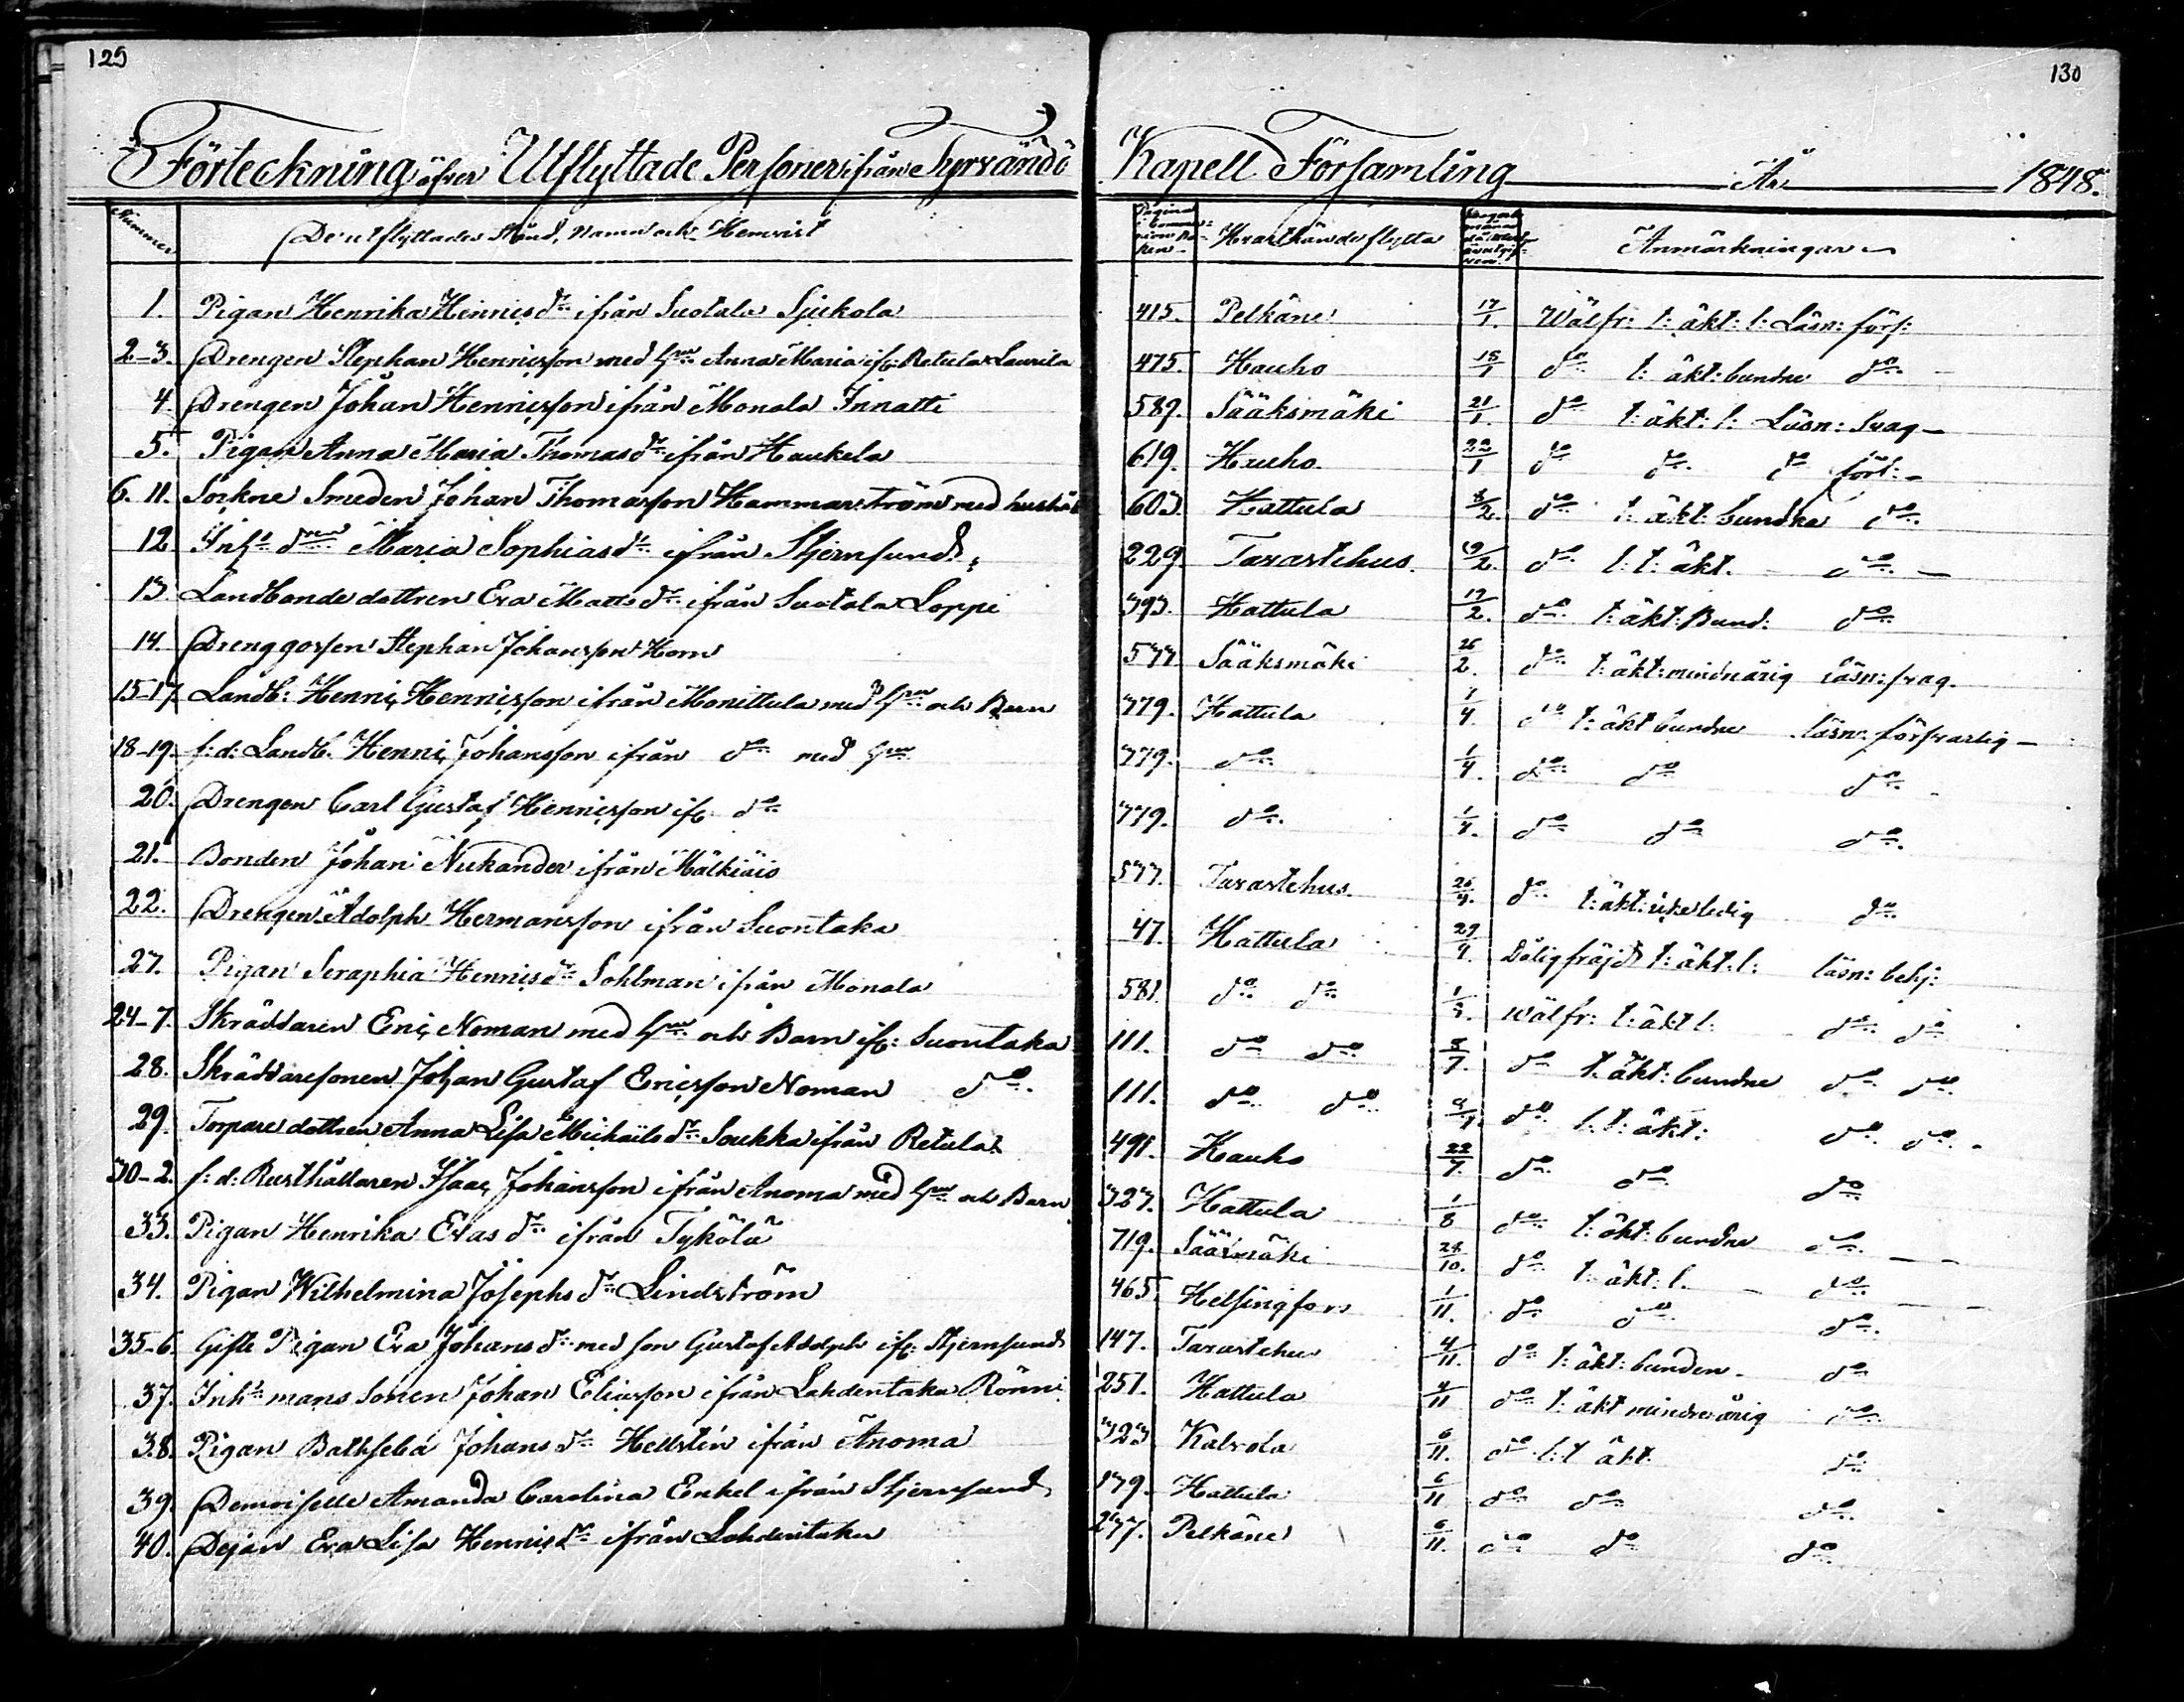 129
130
Förteckning öfver Utflyttade Personer ifrån Tyrvändö Kapell Församling År 1848.
Nummer De utflyttades Stånd, Namn och Hemvist Pagina i Hvarthän de flytta Anmärkningar
1. Pigan Henrika Henricsdr ifrån Suotala Sjukola 415. Pelkäne 17/1. Wälfr: t: äkt: l: Läsn: förs:
2-3. Drengen Stephan Henricsson med hru Anna Maria ifr: Retula Laurila 475. Hauho 18/1 do t: äkt: bundne do
4. Drengen Johan Henricsson ifrån Monala Innatti 589. Sääksmäki 21/1. do t: äkt: l: Läsn: svag
5. Pigan Anna Maria Thomasdr ifrån Haukela 619. Hauho 22/1 do do do förs:
6. 11. Sockne Smeden Johan Thomasson Hammarström med hushåll 603. Hattula 8/2. do t: äkt: bundne do
12 Inhs Maria Sophiasdr ifrån Stjernsund 229. Tavastehus. 19/2. do l: t: äkt. do
13. Landbonde dottren Eva Mattsdr ifrån Suotala Loppi 393. Hattula 19/2. do t: äkt: Bund: do
14. Drenggossen Stephan Johansson Horn 577 Sääksmäki 26/2. do t: äkt: mindreårig Läsn: svag.
15-17. Landb: Henric Henricsson ifrån Monittula med hru och Barn 779. Hattula 1/4 do t: äkt bundne läsn: försvarlig
18-19. f: d: Landb. Henric Johansson ifrån do med hru 779. do 1/4. do do do
20. Drengen Carl Gustaf Henricsson ifr do 779. do 1/4. do do do
21. Bonden Johan Nukander ifrån Mälkiäis 577. Tavastehus. 26/4. do t: äkt: icke ledig do
22. Drengen Adolph Hermansson ifrån Suontaka 47. Hattula 29/4. Dålig fräjd t: äkt: l: läsn: behj:
23. Pigan Seraphia Henricsdr Sohlman ifrån Monala 581. do do 1/5. Wälfr: t: äkt l: do do
24-7. Skräddaren Eric Noman med hru och Barn ifr: Suontaka 111. do do 8/7. do t: äkt: bundne do do
28. Skräddaresonen Johan Gustaf Ericsson Noman do 111. do do do l: t: äkt: do do
29. Torpare dottren Anna Lisa Michaelsdr Soukka ifrån Retula 491. Hauho 22/7. do do do
30-2. f: d: Rusthållaren Isaac Johansson ifrån Anoma med hru och Barn 323. Hattula 1/8 do t: äkt: bundne do
33. Pigan Henrika Evasdr ifrån Tykölä 719. Sääxmäki 28/10. do t: äkt: l. do
34. Pigan Wilhelmina Josephsdr Lindström 465. Helsingfors 1/11. do do do
35-6. Gifte Pigan Eva Johansdr med son Gustaf Adolph ifr: Stjernsund 147. Tavastehus 4/11. do t: äkt: bunden do
37. Inhs mans sonen Johan Eliasson ifrån Lahdentaka Rönni 251. Hattula 4/11 do t: äkt mindreårig do
38. Pigan Bathseba Johansdr Hellstén ifrån Anoma 323 Kalvola 6/11. do l: t äkt do
39. Demoiselle Amanda Carolina Enkel ifrån Stjernsund 179. Hattula 6/11 do do do
40. Dejan Eva Lisa Henricsdr ifrån Lahdentaka 277. Pelkäne 6/11. do do do